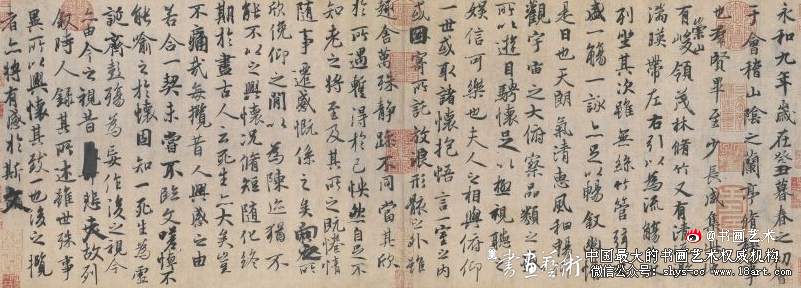 永和九年歲在癸丑暮春之初會
于會稽山陰之蘭亭脩稧事
也群賢畢至少長咸集
有崇山峻領茂林脩竹又有清
湍暎帶左右引以為流觴
列坐其次雖無絲竹管弦
盛一觴一詠亦足以暢敘幽
是日也天朗氣清惠風和暢
觀宇宙之大俯察品類之
所以遊目騁懷足以極視聽之
娛信可樂也夫人之相與俯仰
一世或取諸懷抱悟言一室之內
或因寄所託放浪形骸之外雖
趣舍萬殊靜躁不同當其欣
於所遇暫得於己怏然自足不
知老之將至及其所之既惓情
隨事遷感慨係之矣向之所
欣俛仰之閒以為陳迹猶不
能不以之興懷況脩短隨化終
期於盡古人云死生亦大矣豈
不痛哉每攬昔人興感之由
若合一契未嘗不臨文嗟悼不
能喻之於懷固知一死生為虛
誕齊彭殤為妄作後之視今
亦由今之視昔悲夫故列
敘時人錄其所述雖世殊事
異所以興懷其致一也後之攬
者亦將有感於斯文
@书画艺术
書画藝術
中国最大的书画艺术权威机构
微信公众号：shys-cc www.18art.com